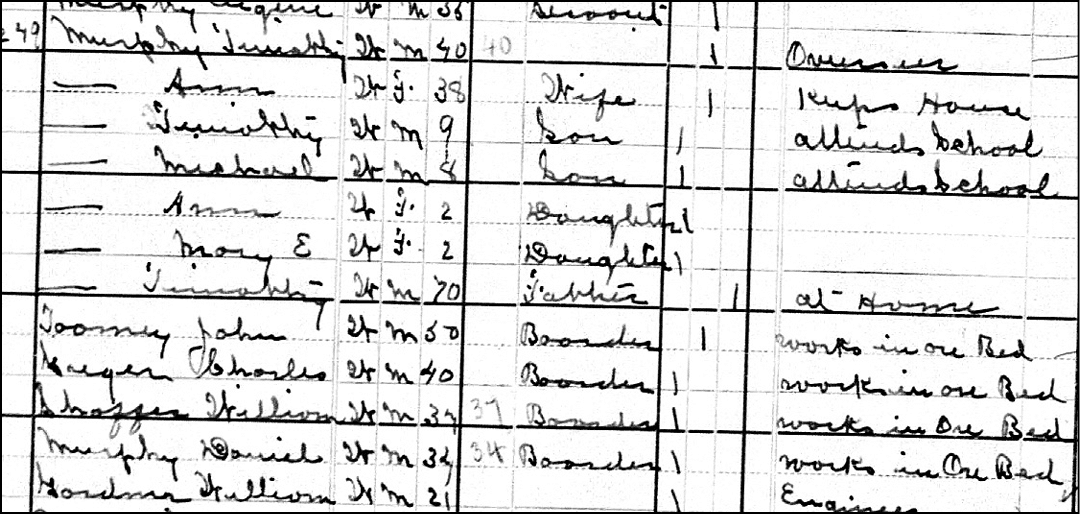 Murphy Eugene W M 35 Servant 1
249 Murphy Timothy W M 40 40 1 Overseer
— Ann W F. 38 Wife 1 Keeps House
— Timothy W M 9 Son 1 attends School
— Michael W M 8 Son 1 attends School
— Ann W F. 2 Daughter 1
— Mary E W F. 2 Daughter 1
— Timothy W M 70 Father 1 at Home
Toomey John W M 50 Boarder 1 works in ore Bed
Charles W M 40 Boarder 1 works in ore Bed
Shaffer William W M 37 37 Boarder 1 works in Ore Bed
Murphy Daniel W M 34 34 Boarder 1 works in Ore Bed
William W M 21 1 Engineer